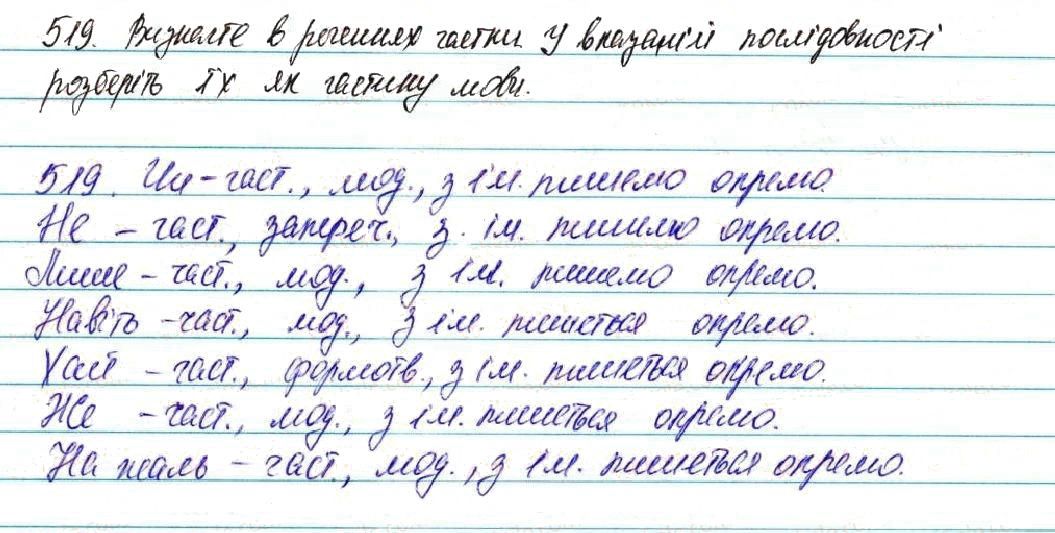 519. Визначте в реченнях частки. У вказаній послідовності
розберіть їх як частину мови.
519. Чи - част., мод., з ім. пишемо окремо.
Не - част., запереч., з. ім. пишемо окремо.
Лише - част., мод., з ім. пишемо окремо.
Навіть - част., мод., з ім. пишеться окремо.
Хай - част., формотв., з ім. пишеться окремо.
Же - част., мод., з ім. пишеться окремо.
На жаль - част., мод., з ім. пишеться окремо.